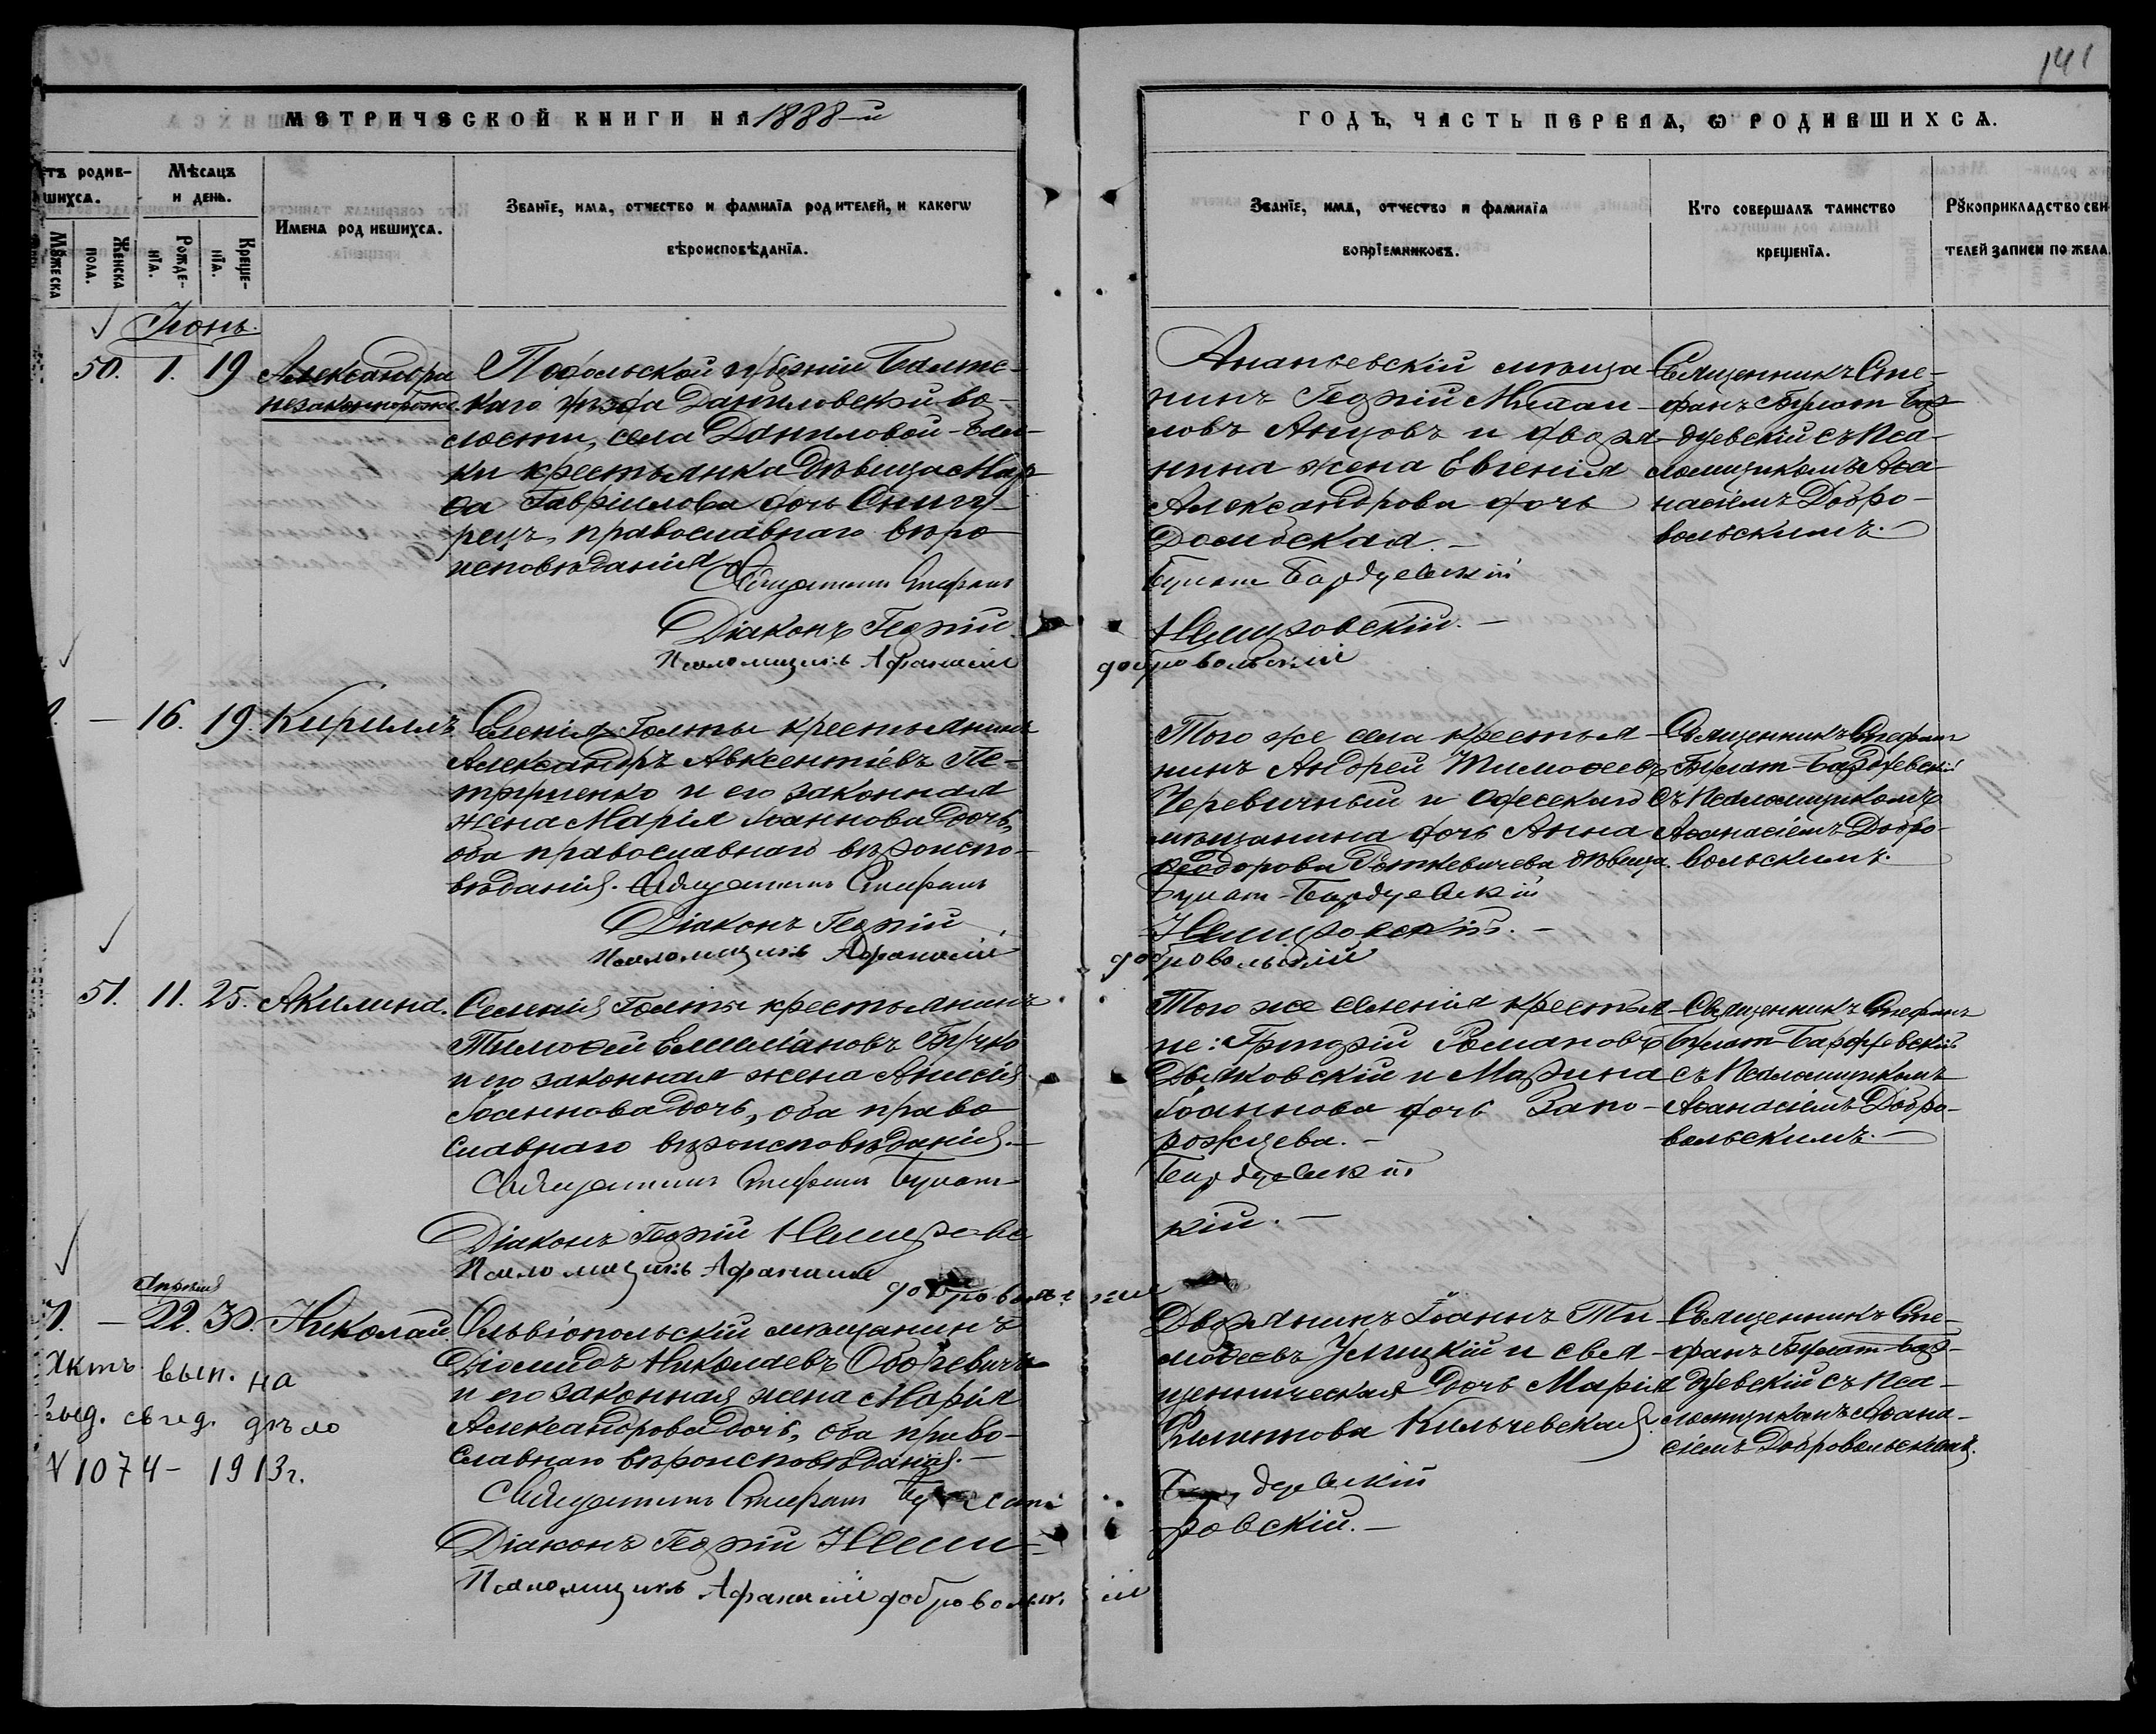 141
МЕТРИЧЕСКОЙ КНИГИ НА 1888-й
ГОДЪ, ЧАСТЬ ПЕРВАЯ, Ѡ РОДИВШИХСЯ.
тъ родив-
шихся.
Мѣсяцъ
и день.
Имена родившихся.
Званїе, имя, отчество и фамилїя родителей, и какогѡ
вѣроисповѣданїя.
Мꙋжеска
Женска
пола.
Рожде-
нїя.
Креще-
нїя.
Званїе, имя, отчество и фамилїя
воспрїемниковъ.
Кто совершалъ таинство
крещенїя.
Рꙋкоприкладство сви
телей записи по жела
Іюнь.
50. 1. 19 Александра
незаконнорожд.
Подольской губерніи Балтс-
каго уѣзда Даниловской во-
лости, села Даниловой-Бал-
ки крестьянка дѣвица Мар-
ѳа Гавріилова дочь Снигу-
рецъ, православнаго вѣро
исповѣданія
Священникъ Стефанъ
Діаконъ Георгій
Псаломщикъ Афанасій
Ананьевскій мѣща-
нинъ Георгій Михаи-
ловъ Анцовъ и дворя-
нина жена Евгенія
Александрова дочь
Домбская.-
Булат Бардуевскій
Немировскій.-
добровольскій
Священникъ Сте-
фанъ Булат-Бар-
дуевскій съ Пса-
ломщикомъ Аѳа-
насіемъ Добро-
вольскимъ.
- 16. 19. Кириллъ
Селенія Голты крестьянинъ
Александръ Авксентіевъ Пе-
трушенко и его законная
жена Марія Іоаннова дочь,
оба православнаго вѣроиспо-
вѣданія. Священникъ Стефанъ
Діаконъ Георгій
Псаломщикъ Афанасій
Того же села крестья-
нинъ Андрей Тимоѳеевъ
Черевичный и Одесскаго
мѣщанина дочь Анна
Ѳеодорова Роткевичева дѣвица.
Булат-Бардуевскій
Немировскій.-
добровольскій
Священникъ Стефанъ
Булат-Бардуевскій
съ Псаломщикомъ
Аѳанасіемъ Добро-
вольскимъ.
51. 11. 25. Акилина.
Селенія Голты крестьянинъ
Тимоѳей Емиліановъ Бучко
и его законная жена Анисія
Іоаннова дочь, оба право
славнаго вѣроисповѣданія.-
Священникъ Стефанъ Булат-
Діаконъ Георгій Немировс
Псаломщикъ Афанасій
добровольскій
Того же селенія крестья-
не: Григорій Романовъ
Дьяковскій и Марина
Іоаннова дочь Запо-
рожцева.-
Бардуевскій
кій.-
Священникъ Стефанъ
Булат-Бардуевскій
съ Псаломщикомъ
Аѳанасіемъ Добро-
вольскимъ.-
Апрѣля
- 22. 30. Николай
Актъ. вып. на
выд. свид. дѣло
N 1074 - 1913 г.
Ольвіопольскій мѣщанинъ
Діомидъ Николаевъ Оборевичъ
и его законная жена Марія
Александрова дочь, оба право-
славнаго вѣроисповѣданія.-
Священникъ Стефанъ Булат
Діаконъ Георгій Неми-
Псаломщикъ Афанасій добровольскій
Дворянинъ Іоаннъ Ти-
моѳеевъ Улицкій и свя-
щенническая дочь Марія
Филиппова Кильчевская.
дуевскій
ровскій.-
Священникъ Сте-
фанъ Булат-Бар-
дуевскій съ Пса-
ломщикомъ Аѳана-
сіемъ Добровольскимъ.